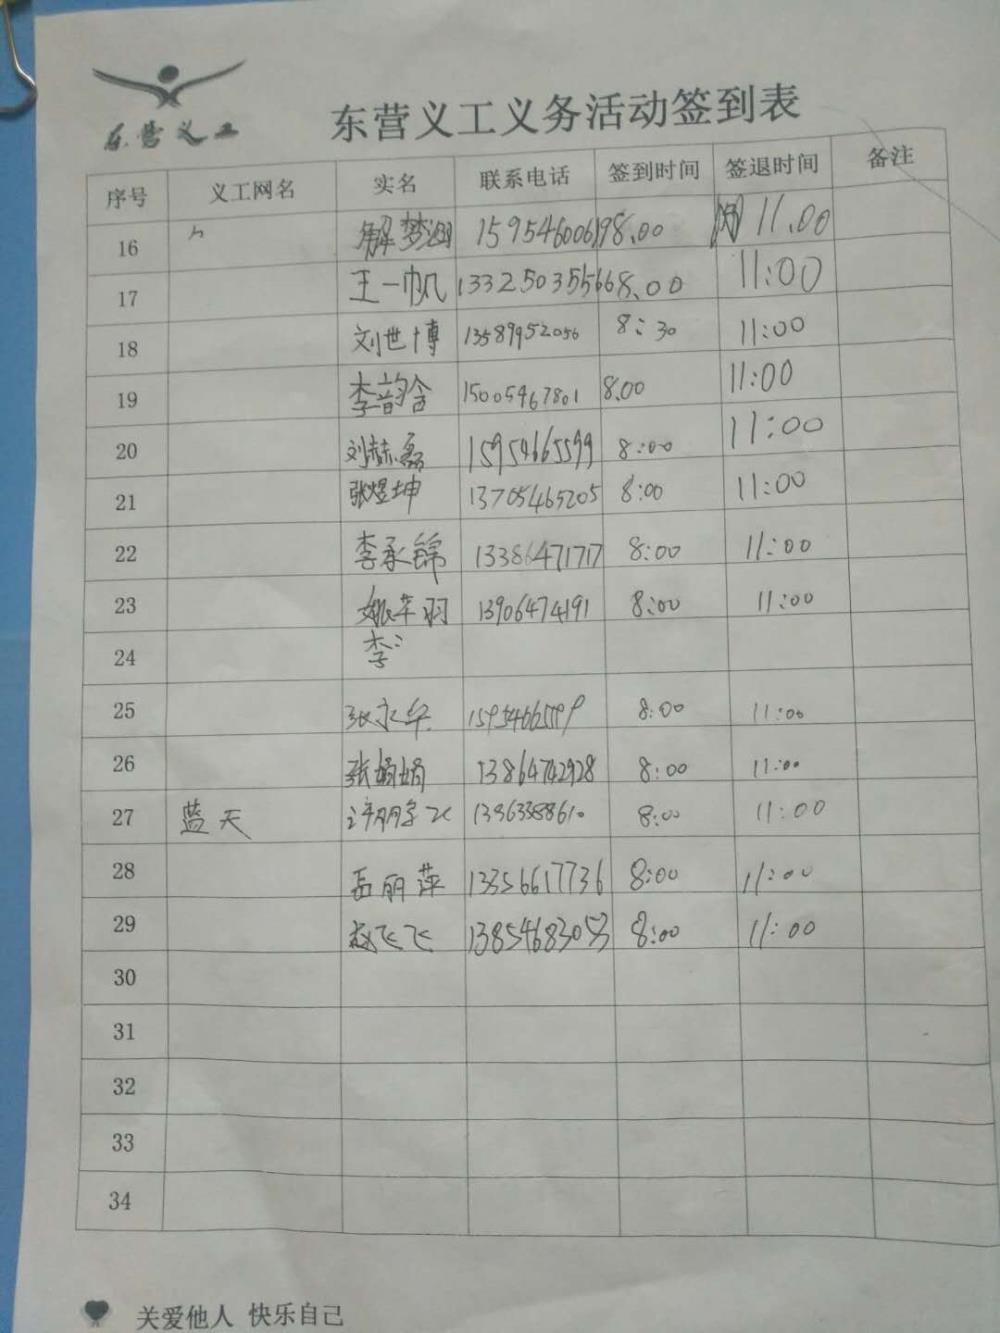 东营义工
东营义工义务活动签到表
序号 义工网名 实名 联系电话 签到时间 签退时间 备注
16 解梦 15954600619 8.00 11.00
17 王一帆 13325035566 8.00 11:00
18 刘世博 13589952056 8:30 11:00
19 李韵含 15005467801 8.00 11:00
20 刘赫磊 15954665599 8:00 11:00
21 张煜坤 13705465205 8:00 11:00
22 李承锦 13386471717 8:00 11:00
23 姚羽 13906474191 8:00 11:00
24 李
25 张永华 8:00 11:00
26 张娟娟 13864742928 8:00 11:00
27 蓝天 8:00 11:00
28 孟丽萍 13356617736 8:00 11:00
29 赵飞飞 13854683053 8:00 11:00
30
31
32
33
34
关爱他人 快乐自己